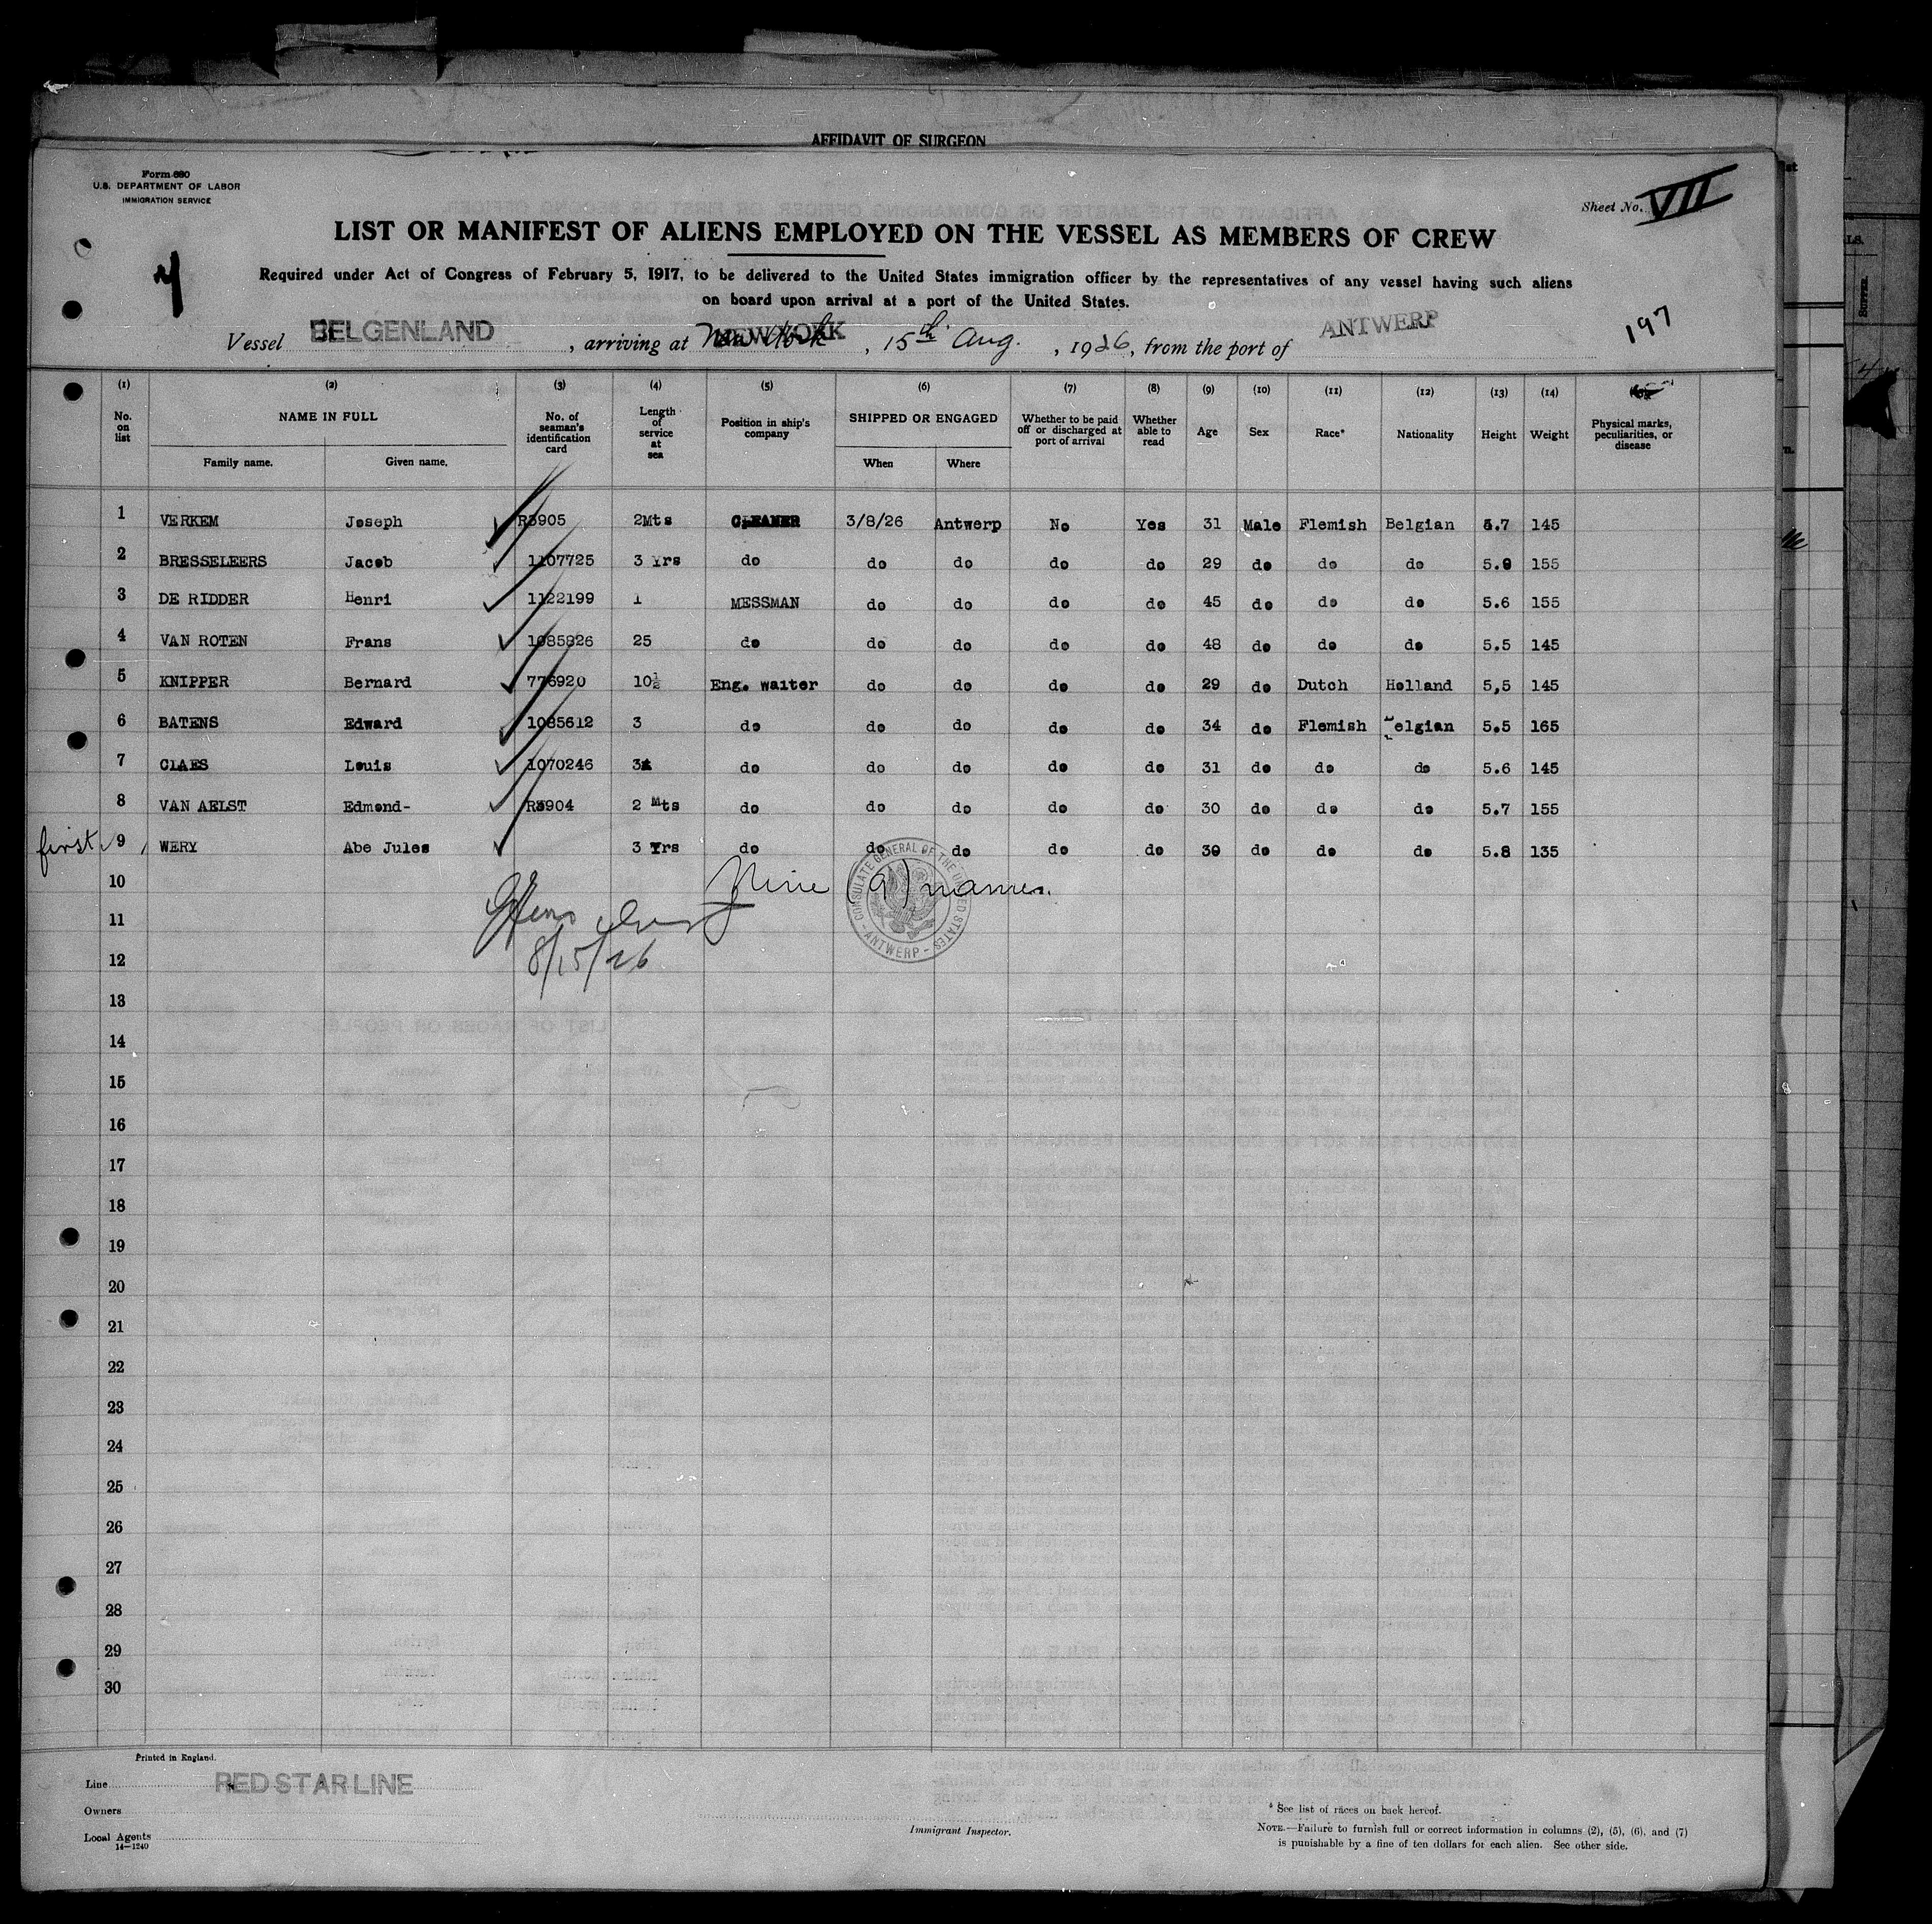 AFFIDAVIT OF SURGEON
Form 680
U.S. DEPARTMENT OF LABOR
IMMIGRATION SERVICE
Sheet No. VII
LIST OR MANIFEST OF ALIENS EMPLOYED ON THE VESSEL AS MEMBERS OF CREW
Required under Act of Congress of February 5, 1917, to be delivered to the United States immigration officer by the representatives of any vessel having such aliens
on board upon arrival at a port of the United States.
197
Vessel BELGENLAND, arriving at New York NEW YORK, 15th Aug., 1926, from the port of ANTWERP
(1) (2) (3) (4) (5) (6) (7) (8) (9) (10) (11) (12) (13) (14)
No. on list NAME IN FULL Family name. Given name. No. of seaman's identification card Length of service at sea Position in ship's company SHIPPED OR ENGAGED When Where Whether to be paid off or discharged at port of arrival Whether able to read Age Sex Race* Nationality Height Weight Physical marks, peculiarities, or disease
1 VERKEM Joseph R3905 2Mts CLEANER 3/8/26 Antwerp No Yes 31 Male Flemish Belgian 5.7 145
2 BRESSELEERS Jacob 1107725 3 Yrs do do do do do 29 do do do 5.9 155
3 DE RIDDER Henri 1122199 1 MESSMAN do do do do 45 do do do 5.6 155
4 VAN ROTEN Frans 1085826 25 do do do do do 48 do do do 5.5 145
5 KNIPPER Bernard 776920 10½ Eng. waiter do do do do 29 do Dutch Holland 5,5 145
6 BATENS Edward 1085612 3 do do do do do 34 do Flemish Belgian 5.5 165
7 CLAES Louis 1070246 3 do do do do do 31 do do do 5.6 145
8 VAN AELST Edmond- R3904 2 Mts do do do do do 30 do do do 5.7 155
first 9 WERY Abe Jules 3 Yrs do do do do do 30 do do do 5.8 135
10 Nine (9) names.
CONSULATE GENERAL OF THE UNITED STATES - ANTWERP -
11
12 8/15/26
13
14
15
16
17
18
19
20
21
22
23
24
25
26
27
28
29
30
Printed in England.
Line RED STAR LINE
Owners
Local Agents
14-1240
Immigrant Inspector.
* See list of races on back hereof.
NOTE.—Failure to furnish full or correct information in columns (2), (5), (6), and (7)
is punishable by a fine of ten dollars for each alien. See other side.